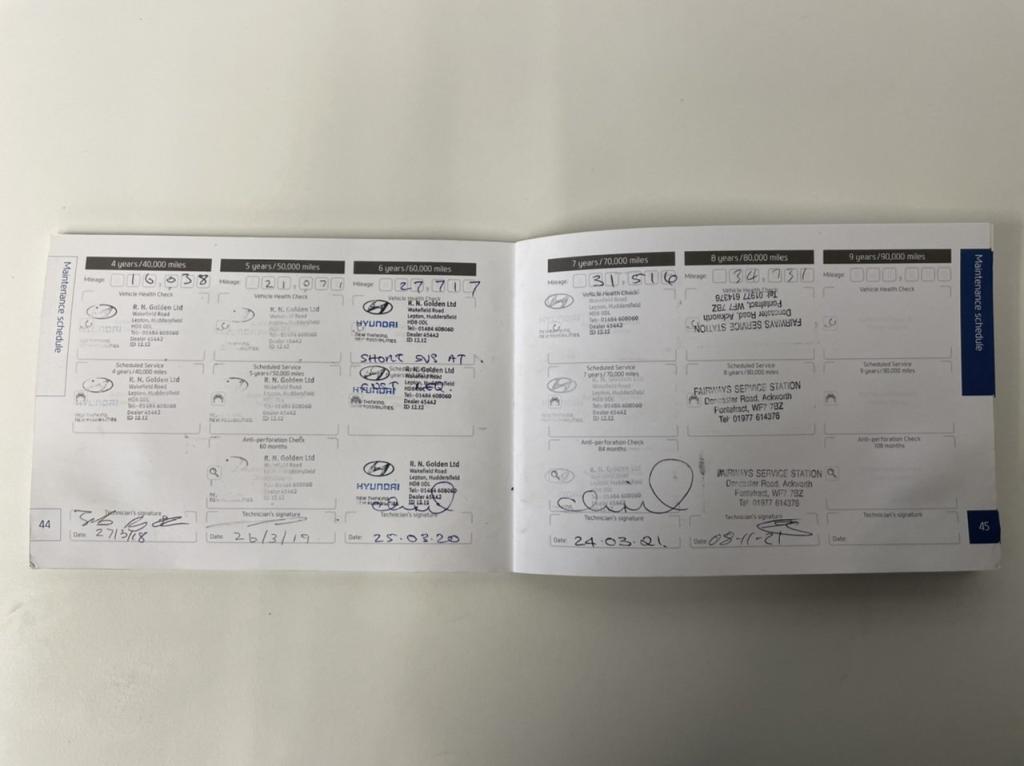 Maintenance schedule
44
4 years/40,000 miles
Mileage: 16,038
Vehicle Health Check
R. N. Golden Ltd
Wakefield Road
Lepton, Huddersfield
HD8 0DL
Tel:- 01484 608060
Dealer 45442
ID 12.12
HYUNDAI
Scheduled Service
4 years/40,000 miles
R. N. Golden Ltd
Wakefield Road
Lepton, Huddersfield
HD8 0DL
Tel:- 01484 608060
Dealer 45442
ID 12.12
NEW THINKING.
NEW POSSIBILITIES.
Technician's signature
Date: 27/3/18
5 years/50,000 miles
Mileage: 21,071
Vehicle Health Check
R. N. Golden Ltd
Wakefield Road
Lepton, Huddersfield
HD8 0DL
Tel:- 01484 608060
Dealer 45442
ID 12.12
Scheduled Service
5 years/50,000 miles
R. N. Golden Ltd
Wakefield Road
Lepton, Huddersfield
HD8 0DL
Tel:- 01484 608060
Dealer 45442
ID 12.12
Anti-perforation Check
60 months
R. N. Golden Ltd
Wakefield Road
Lepton, Huddersfield
HD8 0DL
Tel:- 01484 608060
Dealer 45442
ID 12.12
Technician's signature
Date: 26/3/19
6 years/60,000 miles
Mileage: 27,717
Vehicle Health Check
R. N. Golden Ltd
Wakefield Road
Lepton, Huddersfield
HD8 0DL
Tel:- 01484 608060
Dealer 45442
ID 12.12
HYUNDAI
NEW THINKING.
NEW POSSIBILITIES.
SHORT SVS AT
CUST REQ
R. N. Golden Ltd
Wakefield Road
Lepton, Huddersfield
HD8 0DL
Tel:- 01484 608060
Dealer 45442
ID 12.12
HYUNDAI
NEW THINKING.
NEW POSSIBILITIES.
R. N. Golden Ltd
Wakefield Road
Lepton, Huddersfield
HD8 0DL
Tel:- 01484 608060
Dealer 45442
ID 12.12
HYUNDAI
NEW THINKING.
NEW POSSIBILITIES.
Technician's signature
Date: 25.03.20
7 years/70,000 miles
Mileage: 31,516
Vehicle Health Check
Wakefield Road
Lepton, Huddersfield
HD8 0DL
Tel:- 01484 608060
Dealer 45442
ID 12.12
HYUNDAI
Scheduled Service
7 years/70,000 miles
Anti-perforation Check
84 months
Technician's signature
Date: 24.03.21.
8 years/80,000 miles
Mileage: 34,731
Vehicle Health Check
FAIRWAYS SERVICE STATION
Doncaster Road, Ackworth
Pontefract, WF7 7BZ
Tel. 01977 614376
Scheduled Service
8 years/80,000 miles
FAIRWAYS SERVICE STATION
Doncaster Road, Ackworth
Pontefract, WF7 7BZ
Tel. 01977 614376
FAIRWAYS SERVICE STATION
Doncaster Road, Ackworth
Pontefract, WF7 7BZ
Tel. 01977 614376
Technician's signature
Date: 08-11-21
9 years/90,000 miles
Mileage:
Vehicle Health Check
Scheduled Service
9 years/90,000 miles
Anti-perforation Check
108 months
Technician's signature
Date:
Maintenance schedule
45